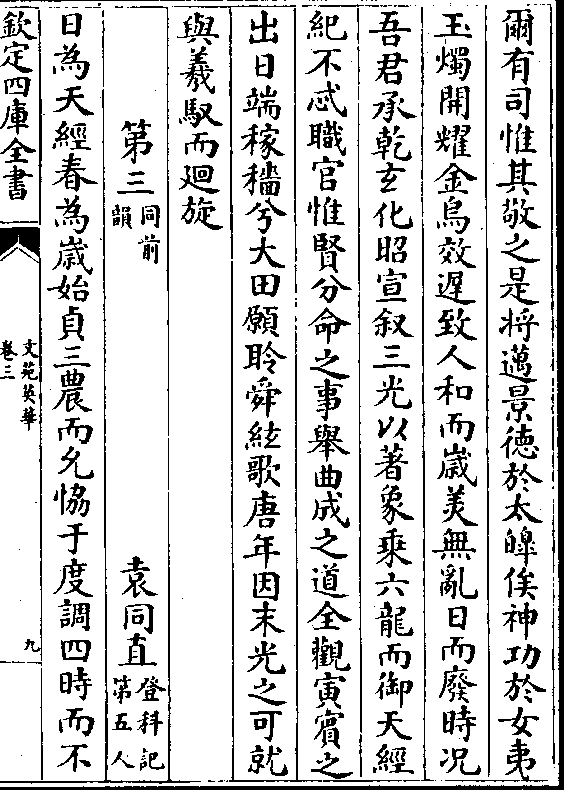 爾有司惟其敬之是将邁景德於太皡俟神功於女夷
玉燭開耀金烏效遲致人和而嵗羙無亂日而廢時况
吾君承乾玄化昭宣叙三光以著象乗六龍而御天經
紀不忒職官惟賢分命之事舉曲成之道全觀寅賔之
出日端稼穡兮大田願聆舜絃歌唐年因末光之可就
與羲馭而廻旋
第三同前韻
袁同直登科記第五人
日為天經春為嵗始貞三農而允恊于度調四時而不
欽定四庫全書
文苑英華
卷三
九